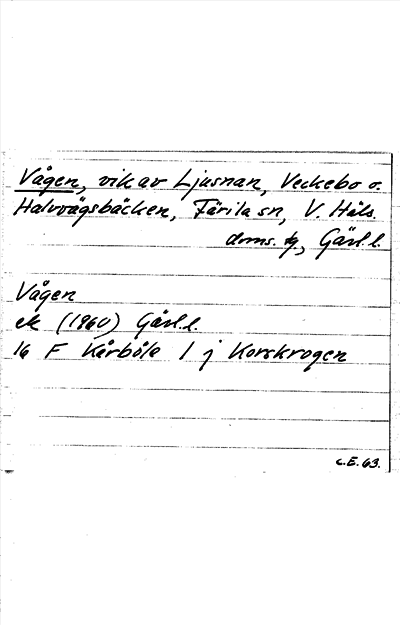 Vågen, vik av Ljusnan, Veckebo o.
Halvvägsbäcken, Färila sn, V. Häls.
doms. tg, Gävl. l.
Vågen
ek (1960) Gävl. l.
16 F Kårböle 1 j Korskrogen
C.E. 63.